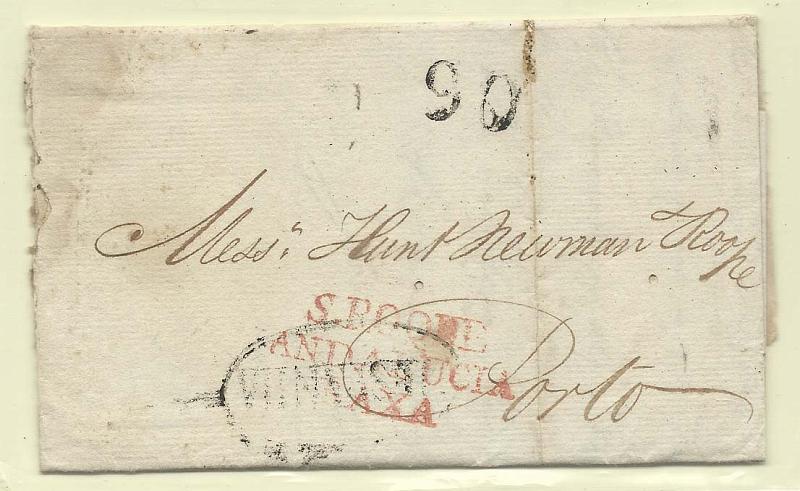 90
Mess.rs Hunt Newman Roope
S. ROQUE
ANDALUCIA
BAXA
Porto